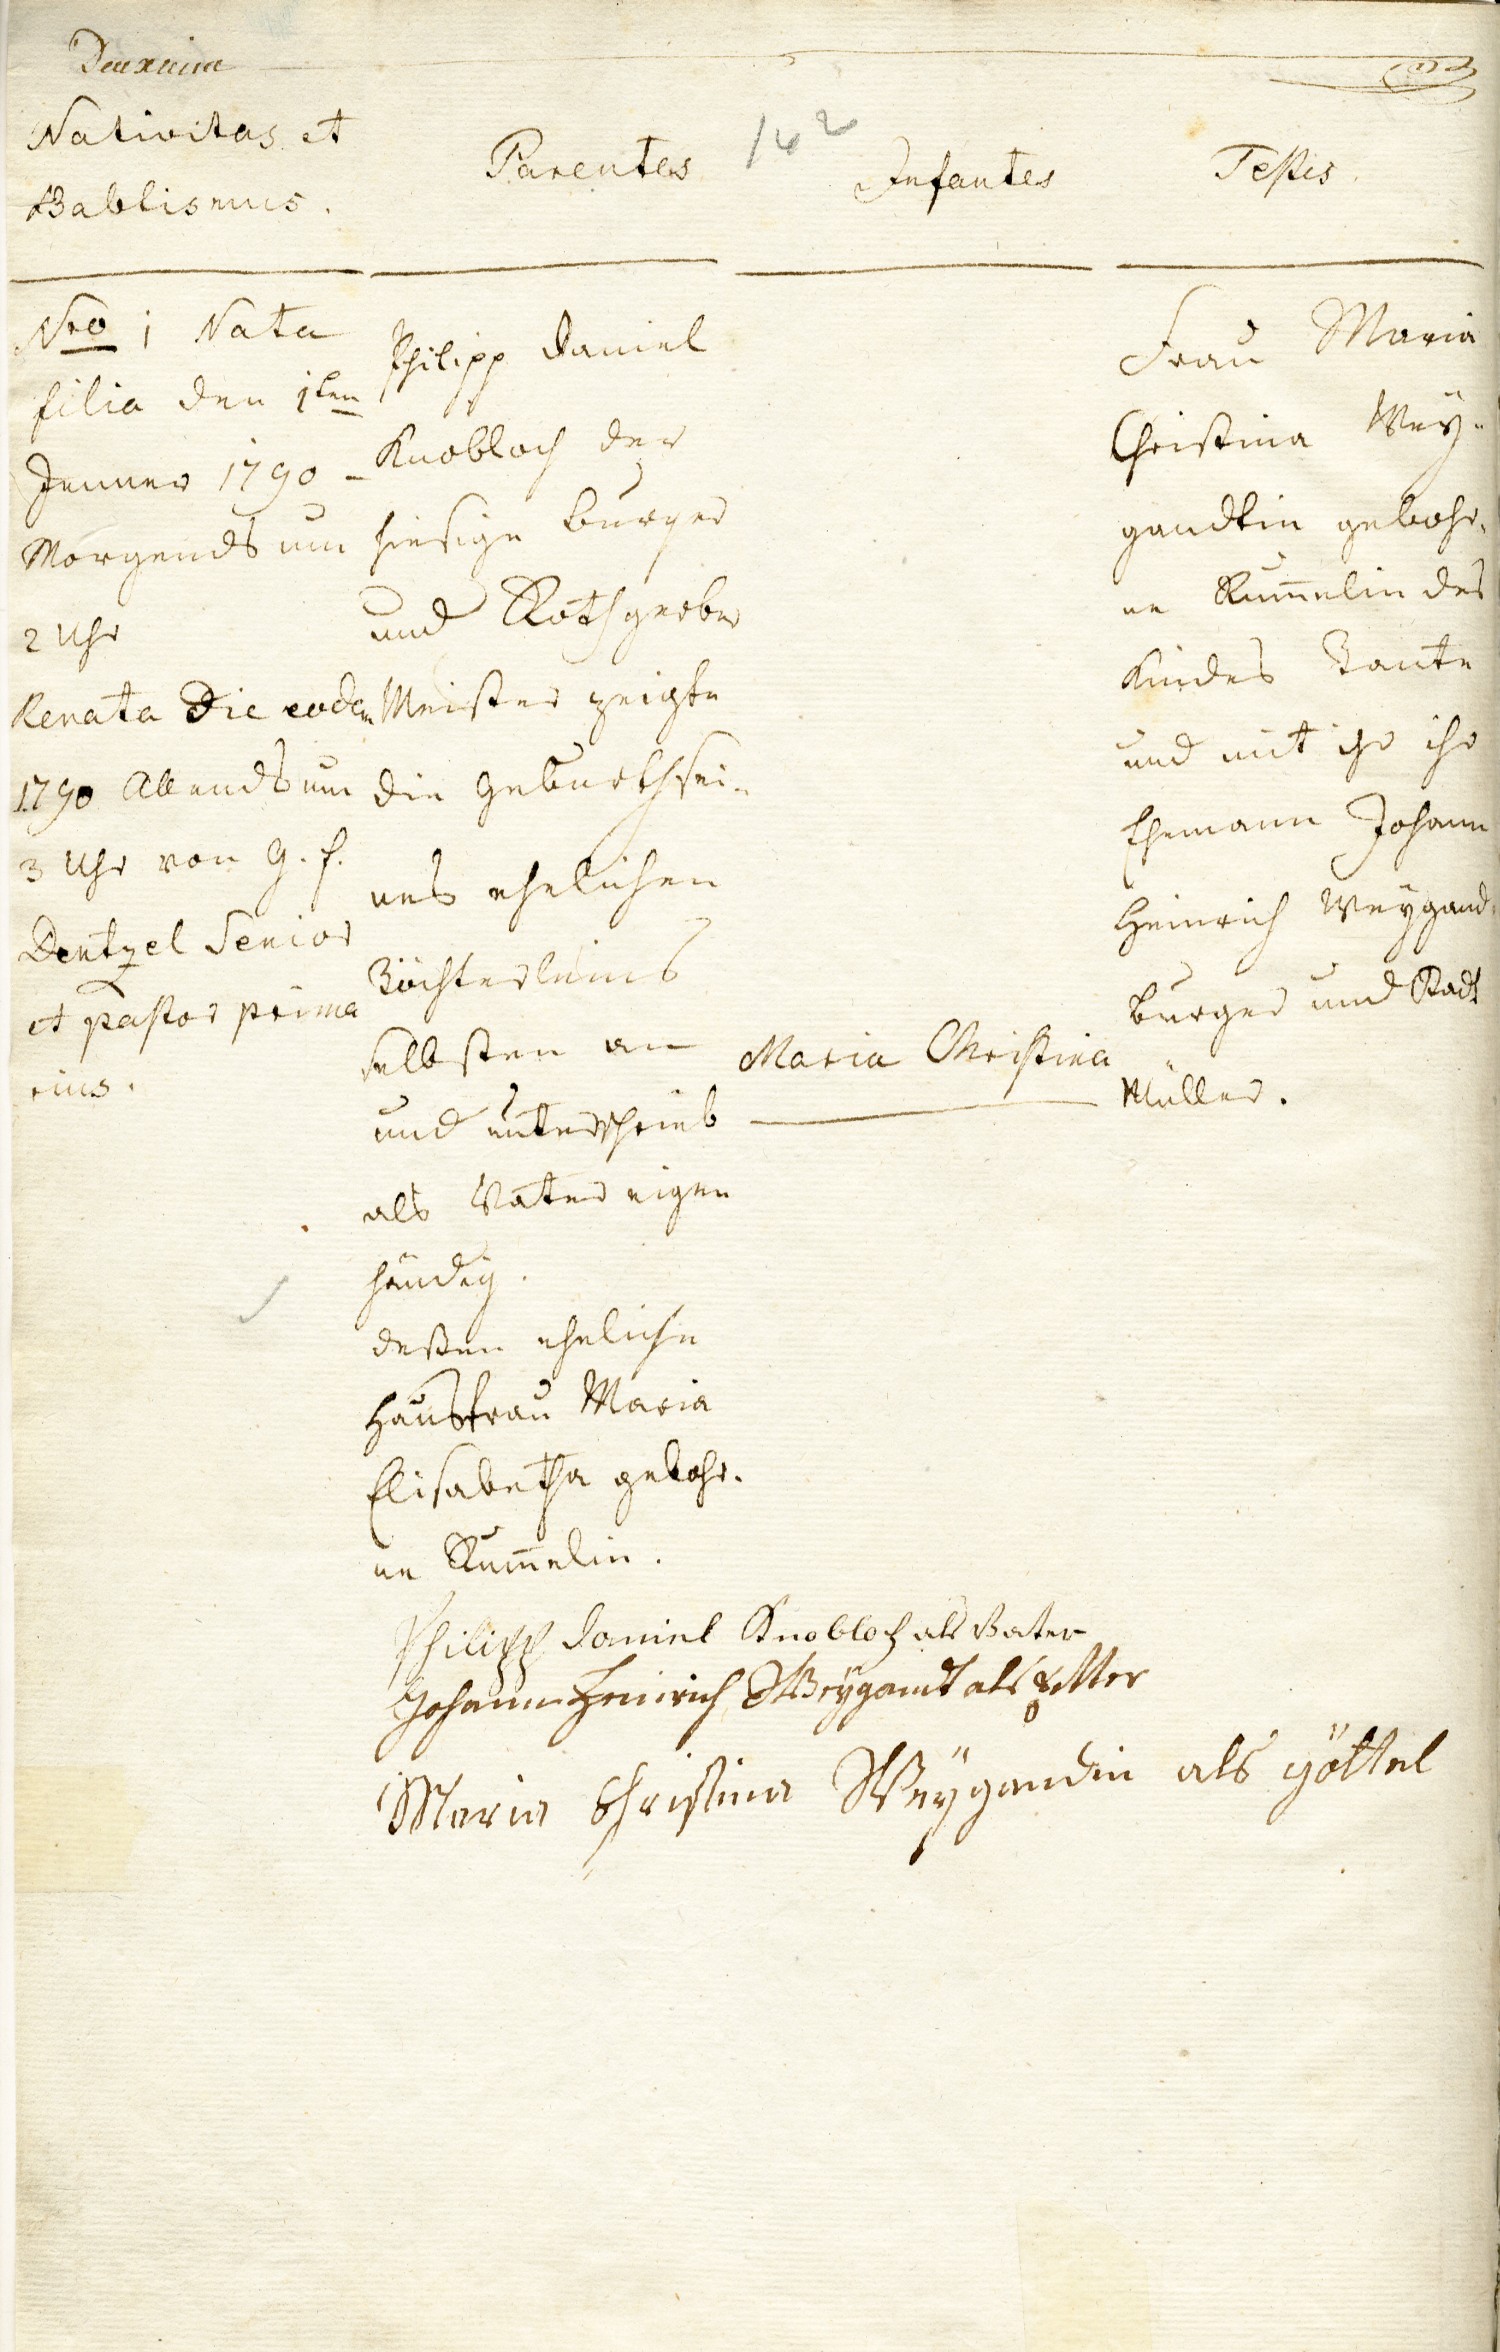 Nativitas et
Bablismus.
Parentes
142
Infantes
Testis.
Nro 1 Nata
filia den 1ten
Jenner 1790 -
Morgends um
2 Uhr
Renata Die eodem
1790 Abends um
3 Uhr von G. f.
Dentzel Senior
et pastor prima
rius.
Philipp Daniel
Knobloch der
hiesige Burger
und Rothgerber
Meister zeigte
die Geburth sei-
nes ehelichen
Töchterleins
selbsten an
und unterschrieb
als Vater eigen
händig.
deßen eheliche
Hausfrau Maria
Elisabetha gebohr-
ne Rum̄elin.
Maria Christina
Frau Maria
Christina Wey-
gandtin gebohr-
ne Rum̄elin des
Kindes Tante
und mit ihr ihr
Ehemann Johann
Heinrich Weygand
burger und Stadt
Müller.
Philipp Daniel Knobloch als Vater
Johann Heinrich Weygandt als
Maria Christina Weygandin als göttel